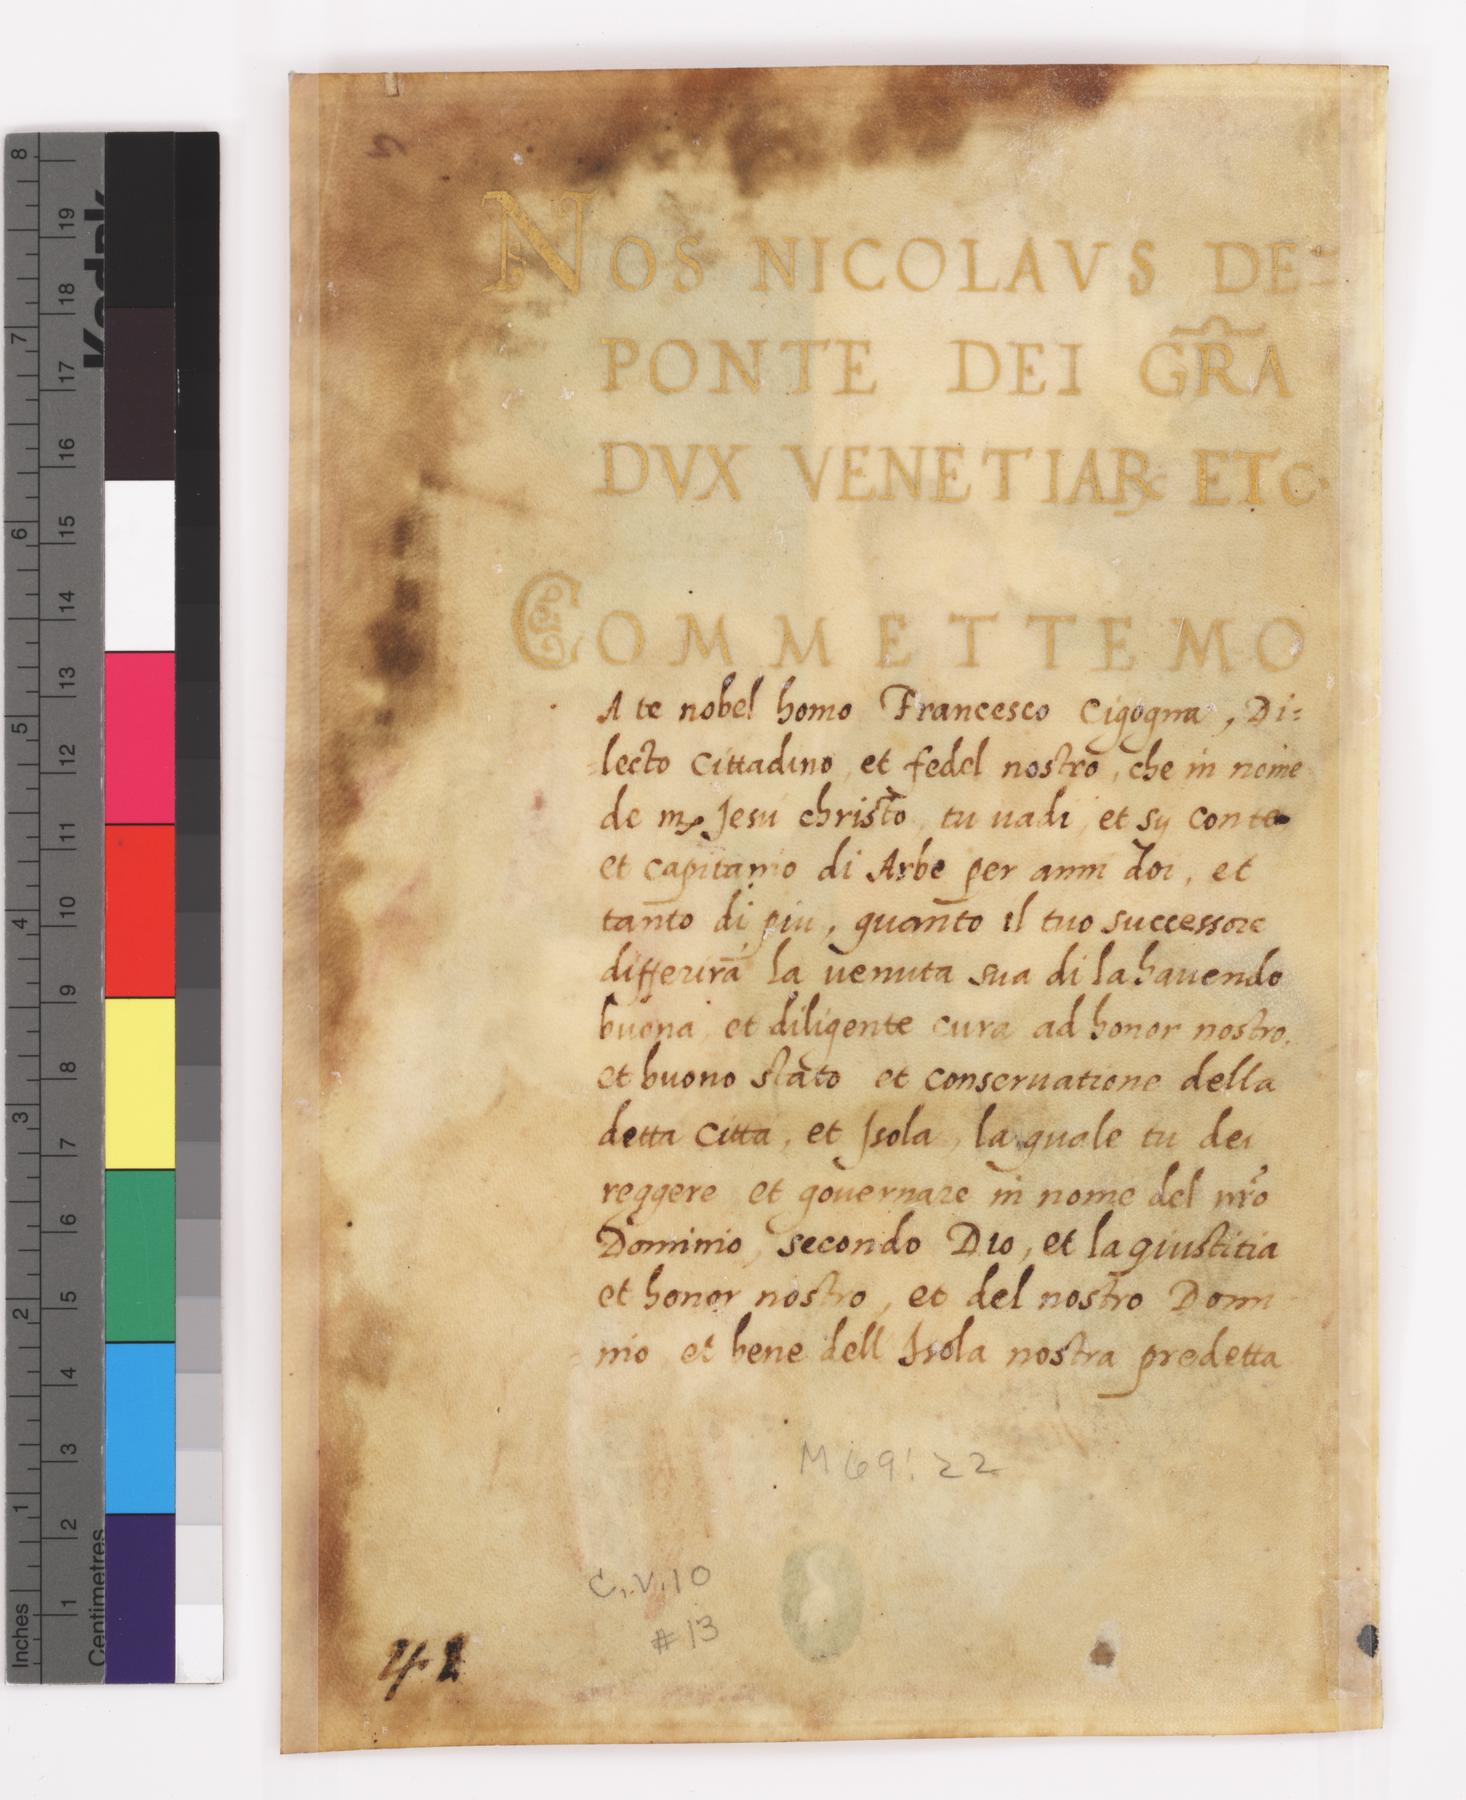 NOS NICOLAVS DE=
PONTE DEI GR̃A
DVX VENETIAR ETC.
COMMETTEMO
A te nobel homo Francesco Cigogna, Di=
lecto Cittadino et fedel nostro, che in nome
de mr Jesu christo, tu uadi et sij Conte
et capitanio di Arbe per anni doi, et
tanto di piu, quanto il tuo successore
differirà la uenuta sua di la hauendo
buona et diligente cura ad honor nostro,
et buono stato et conseruatione della
detta Citta, et Jsola, la quale tu dei
reggere et gouernare in nome del nr̃o
Dominio, secondo Dio, et la giustitia
et honor nostro, et del nostro Domi
nio et bene dell Isola nostra predetta
M69:22
C.V.10
#13
Kodak
Inches
1 2 3 4 5 6 7 8
Centimetres
1 2 3 4 5 6 7 8 9 10 11 12 13 14 15 16 17 18 19